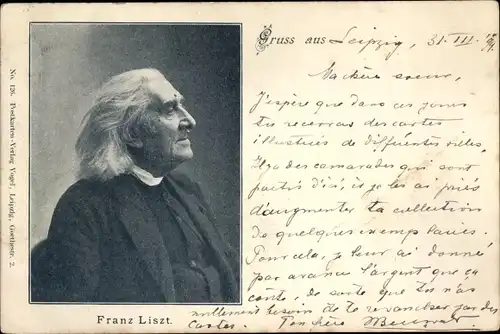 No. 128. Postkarten-Verlag Vogel, Leipzig, Goethestr. 2.
Franz Liszt.
Gruss aus Leipzig, 31. III.
Ma chère soeur,
J'espère que dans ces jours
tu recevras des cartes
illustrées de différentes villes.
Il y a des camarades qui sont
partis d'ici, et je les ai priés
d'augmenter ta collection
de quelques exemplaires.
Pour cela, je leur ai donné
par avance l'argent que ça
coûte, de sorte que tu n'as
nullement besoin de te revancher par des
Cartes. Ton frère